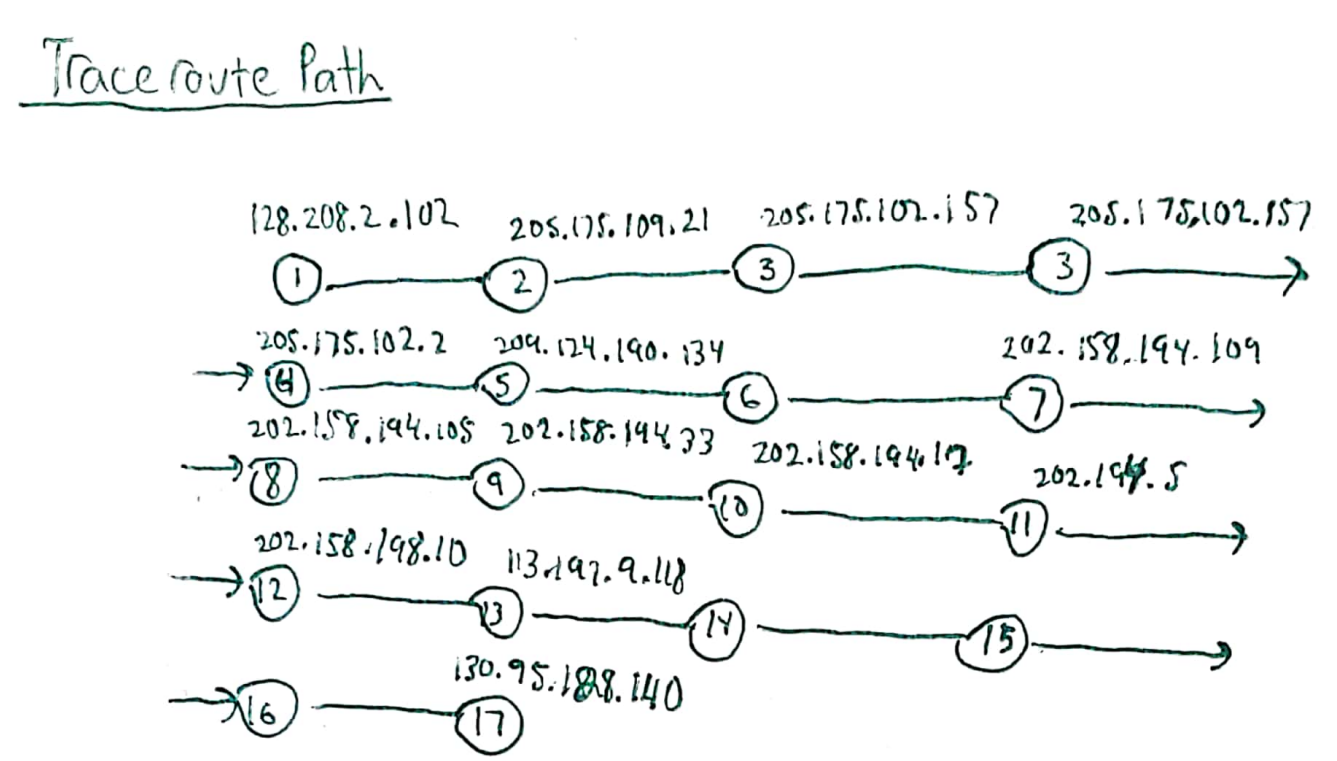 Traceroute Path
128.208.2.102 205.175.109.21 205.175.102.157 205.175.102.157
1 2 3 3
205.175.102.2 209.124.190.134 202.158.194.109
4 5 6 7
202.158.194.105 202.158.194.33 202.158.194.17 202.194.5
8 9 10 11
202.158.198.10 113.197.9.118
12 13 14 15
130.95.128.140
16 17